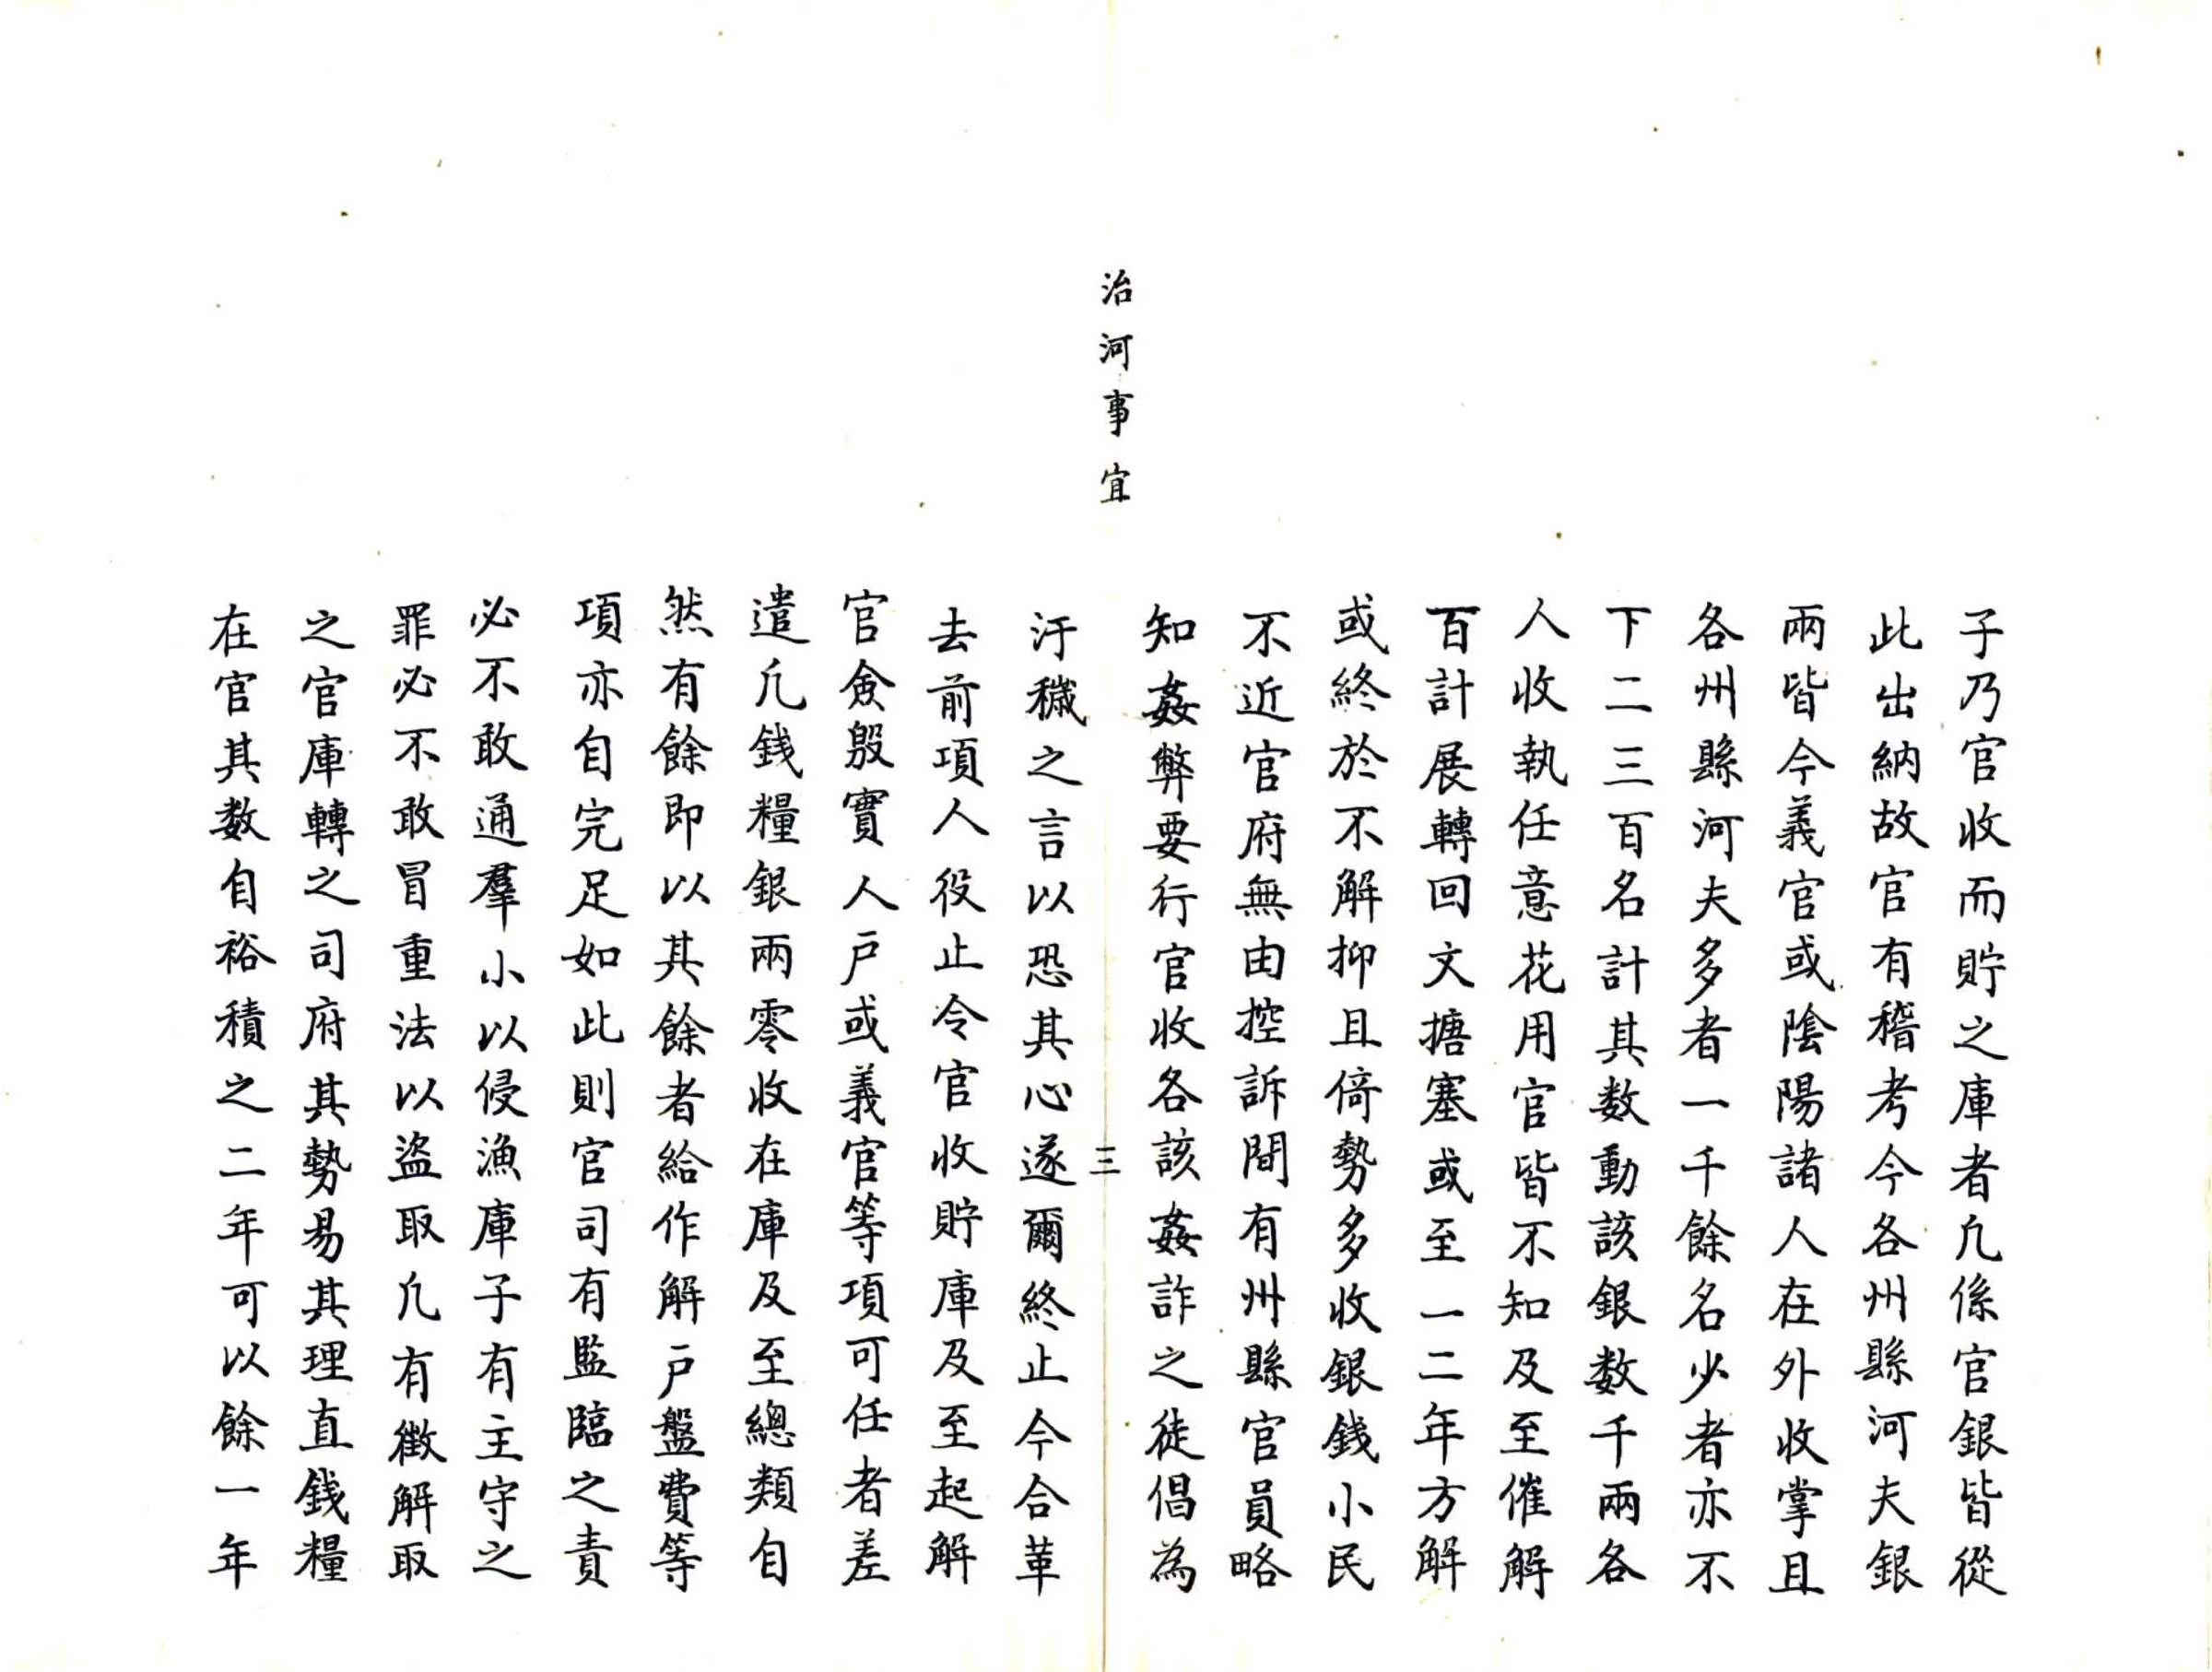 子乃官收而貯之庫者凢係官銀皆從
此出納故官有稽考今各州縣河夫銀
兩皆令義官或陰陽諸人在外收掌且
各州縣河夫多者一千餘名少者亦不
下二三百名計其数動該銀数千兩各
人收執任意花用官皆不知及至催解
百計展轉回文搪塞或至一二年方解
或終於不解抑且倚勢多收銀錢小民
不近官府無由控訴間有州縣官員略
知姦弊要行官收各該姦詐之徒倡為
治河事宜
三
汙穢之言以恐其心遂爾終止今合革
去前項人役止令官收貯庫及至起解
官僉殷實人戶或義官等項可任者差
遣凢錢糧銀兩零收在庫及至總類自
然有餘即以其餘者給作解戶盤費等
項亦自完足如此則官司有監臨之責
必不敢通羣小以侵漁庫子有主守之
罪必不敢冒重法以盜取凢有徵解取
之官庫轉之司府其勢易其理直錢糧
在官其数自裕積之二年可以餘一年